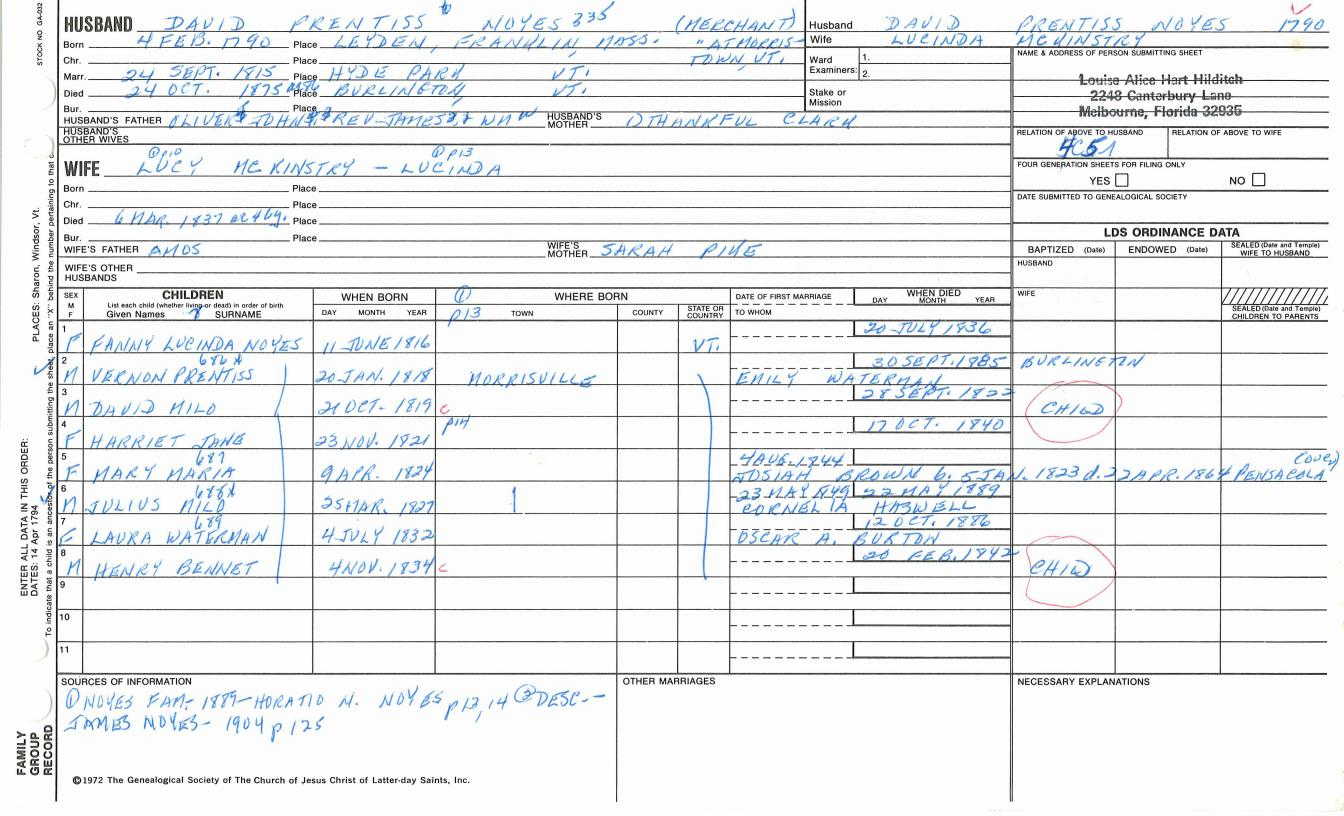 STOCK NO. GA-032
HUSBAND DAVID PRENTISS NOYES 335 (MERCHANT)
Born 4 FEB. 1790 Place LEYDEN, FRANKLIN, MASS. "AT MORRIS-
Chr. Place TOWN, VT.
Marr. 24 SEPT. 1815 Place HYDE PARK VT.
Died 24 OCT. 1875 Place BURLINGTON, VT.
Bur. Place
HUSBAND'S FATHER OLIVER JOHN REV JAMES WM HUSBAND'S MOTHER THANKFUL CLARK
HUSBAND'S OTHER WIVES
@p10 @p13
WIFE LUCY MCKINSTRY - LUCINDA
Born Place
Chr. Place
Died 6 MAR. 1837 Place
Bur. Place
WIFE'S FATHER AMOS WIFE'S MOTHER SARAH
WIFE'S OTHER HUSBANDS
Husband DAVID PRENTISS NOYES 1790
Wife LUCINDA MCKINSTRY
Ward Examiners: 1.
2.
Stake or Mission
NAME & ADDRESS OF PERSON SUBMITTING SHEET
Louisa Alice Hart Hilditch
2248 Canterbury Lane
Melbourne, Florida 32935
RELATION OF ABOVE TO HUSBAND RELATION OF ABOVE TO WIFE
FOUR GENERATION SHEETS FOR FILING ONLY
YES NO
DATE SUBMITTED TO GENEALOGICAL SOCIETY
LDS ORDINANCE DATA
BAPTIZED (Date) ENDOWED (Date) SEALED (Date and Temple) WIFE TO HUSBAND
HUSBAND
WIFE
SEALED (Date and Temple) CHILDREN TO PARENTS
SEX M F CHILDREN List each child (whether living or dead) in order of birth Given Names SURNAME WHEN BORN DAY MONTH YEAR ① p13 WHERE BORN TOWN COUNTY STATE OR COUNTRY DATE OF FIRST MARRIAGE TO WHOM WHEN DIED DAY MONTH YEAR
1 20 JULY 1836
F FANNY LUCINDA NOYES 11 JUNE 1816 VT.
2 686 30 SEPT. 1885 BURLINGTON
M VERNON PRENTISS 20 JAN. 1818 MORRISVILLE EMILY WATERMAN
3 28 SEPT. 1822
M DAVID MILO 21 OCT. 1819 C CHILD
4 p14 17 OCT. 1840
F HARRIET JANE 23 NOV. 1821
5 687 4 AUG. 1844 (over)
F MARY MARIA 9 APR. 1824 JOSIAH BROWN b. 5 JAN. 1823 d. 22 APR. 1864 PENSACOLA
6 688 23 MAY 1849 22 MAY 1889
M JULIUS MILO 25 MAR. 1827 CORNELIA HASWELL
7 689 12 OCT. 1886
F LAURA WATERMAN 4 JULY 1832 OSCAR A. BURTON
8 20 FEB. 1842
M HENRY BENNET 4 NOV. 1834 C CHILD
9
10
11
SOURCES OF INFORMATION
① NOYES FAM- 1889-HORATIO N. NOYES p 13, 14 ② DESC.-
JAMES NOYES- 1904 p 125
OTHER MARRIAGES
NECESSARY EXPLANATIONS
©1972 The Genealogical Society of The Church of Jesus Christ of Latter-day Saints, Inc.
PLACES: Sharon, Windsor, Vt.
ENTER ALL DATA IN THIS ORDER:
DATES: 14 Apr 1794
To indicate that a child is an ancestor of the person submitting the sheet, place an "X" behind the number pertaining to that c
FAMILY GROUP RECORD